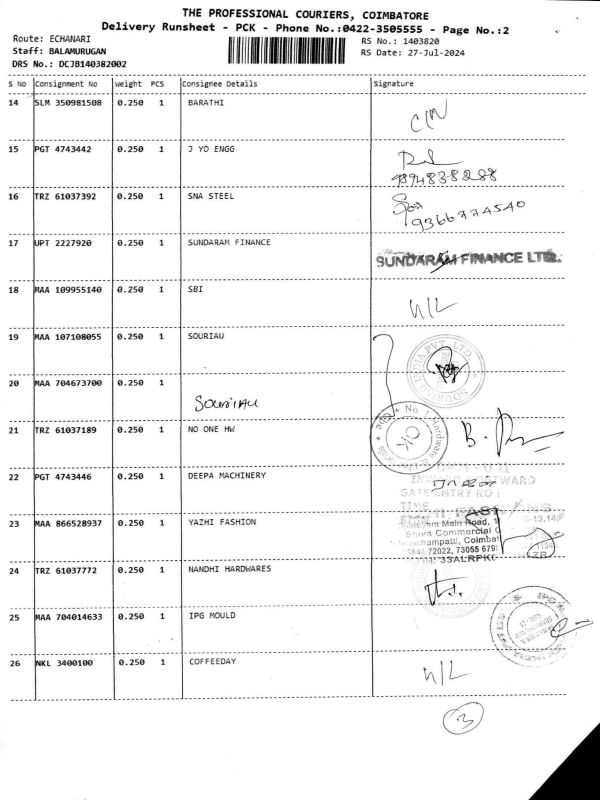 THE PROFESSIONAL COURIERS, COIMBATORE
Delivery Runsheet - PCK - Phone No.:0422-3505555 - Page No.:2
Route: ECHANARI
RS No.: 1403820
Staff: BALAMURUGAN
RS Date: 27-Jul-2024
DRS No.: DCJB140382002
S No Consignment No Weight PCS Consignee Details Signature
14 SLM 350981508 0.250 1 BARATHI
15 PGT 4743442 0.250 1 J YO ENGG
9894838288
16 TRZ 61037392 0.250 1 SNA STEEL
9366774540
17 UPT 2227920 0.250 1 SUNDARAM FINANCE
SUNDARAM FINANCE LTD.
18 MAA 109955140 0.250 1 SBI
N/L
19 MAA 107108055 0.250 1 SOURIAU
20 MAA 704673700 0.250 1
SOURIAU
21 TRZ 61037189 0.250 1 NO ONE HW
OK
22 PGT 4743446 0.250 1 DEEPA MACHINERY
GATE ENTRY NO :
23 MAA 866528937 0.250 1 YAZHI FASHION
Main Road,
24 TRZ 61037772 0.250 1 NANDHI HARDWARES
25 MAA 704014633 0.250 1 IPG MOULD
26 NKL 3400100 0.250 1 COFFEEDAY
N/L
3